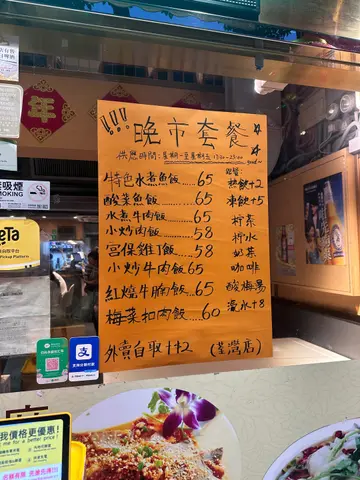 !!! 晚市套餐
供應時間：星期一至星期五
特色水煮魚飯 65
酸菜魚飯 65
水煮牛肉飯 65
小炒肉飯 58
宮保雞丁飯 58
小炒牛肉飯 65
紅燒牛腩飯 65
梅菜扣肉飯 60
熱飲+2
凍飲+5
柠茶
柠水
奶茶
咖啡
酸梅湯
汽水+8
外賣自取++2 (荃灣店)
年
吸煙
SMOKING
我價格更優惠!